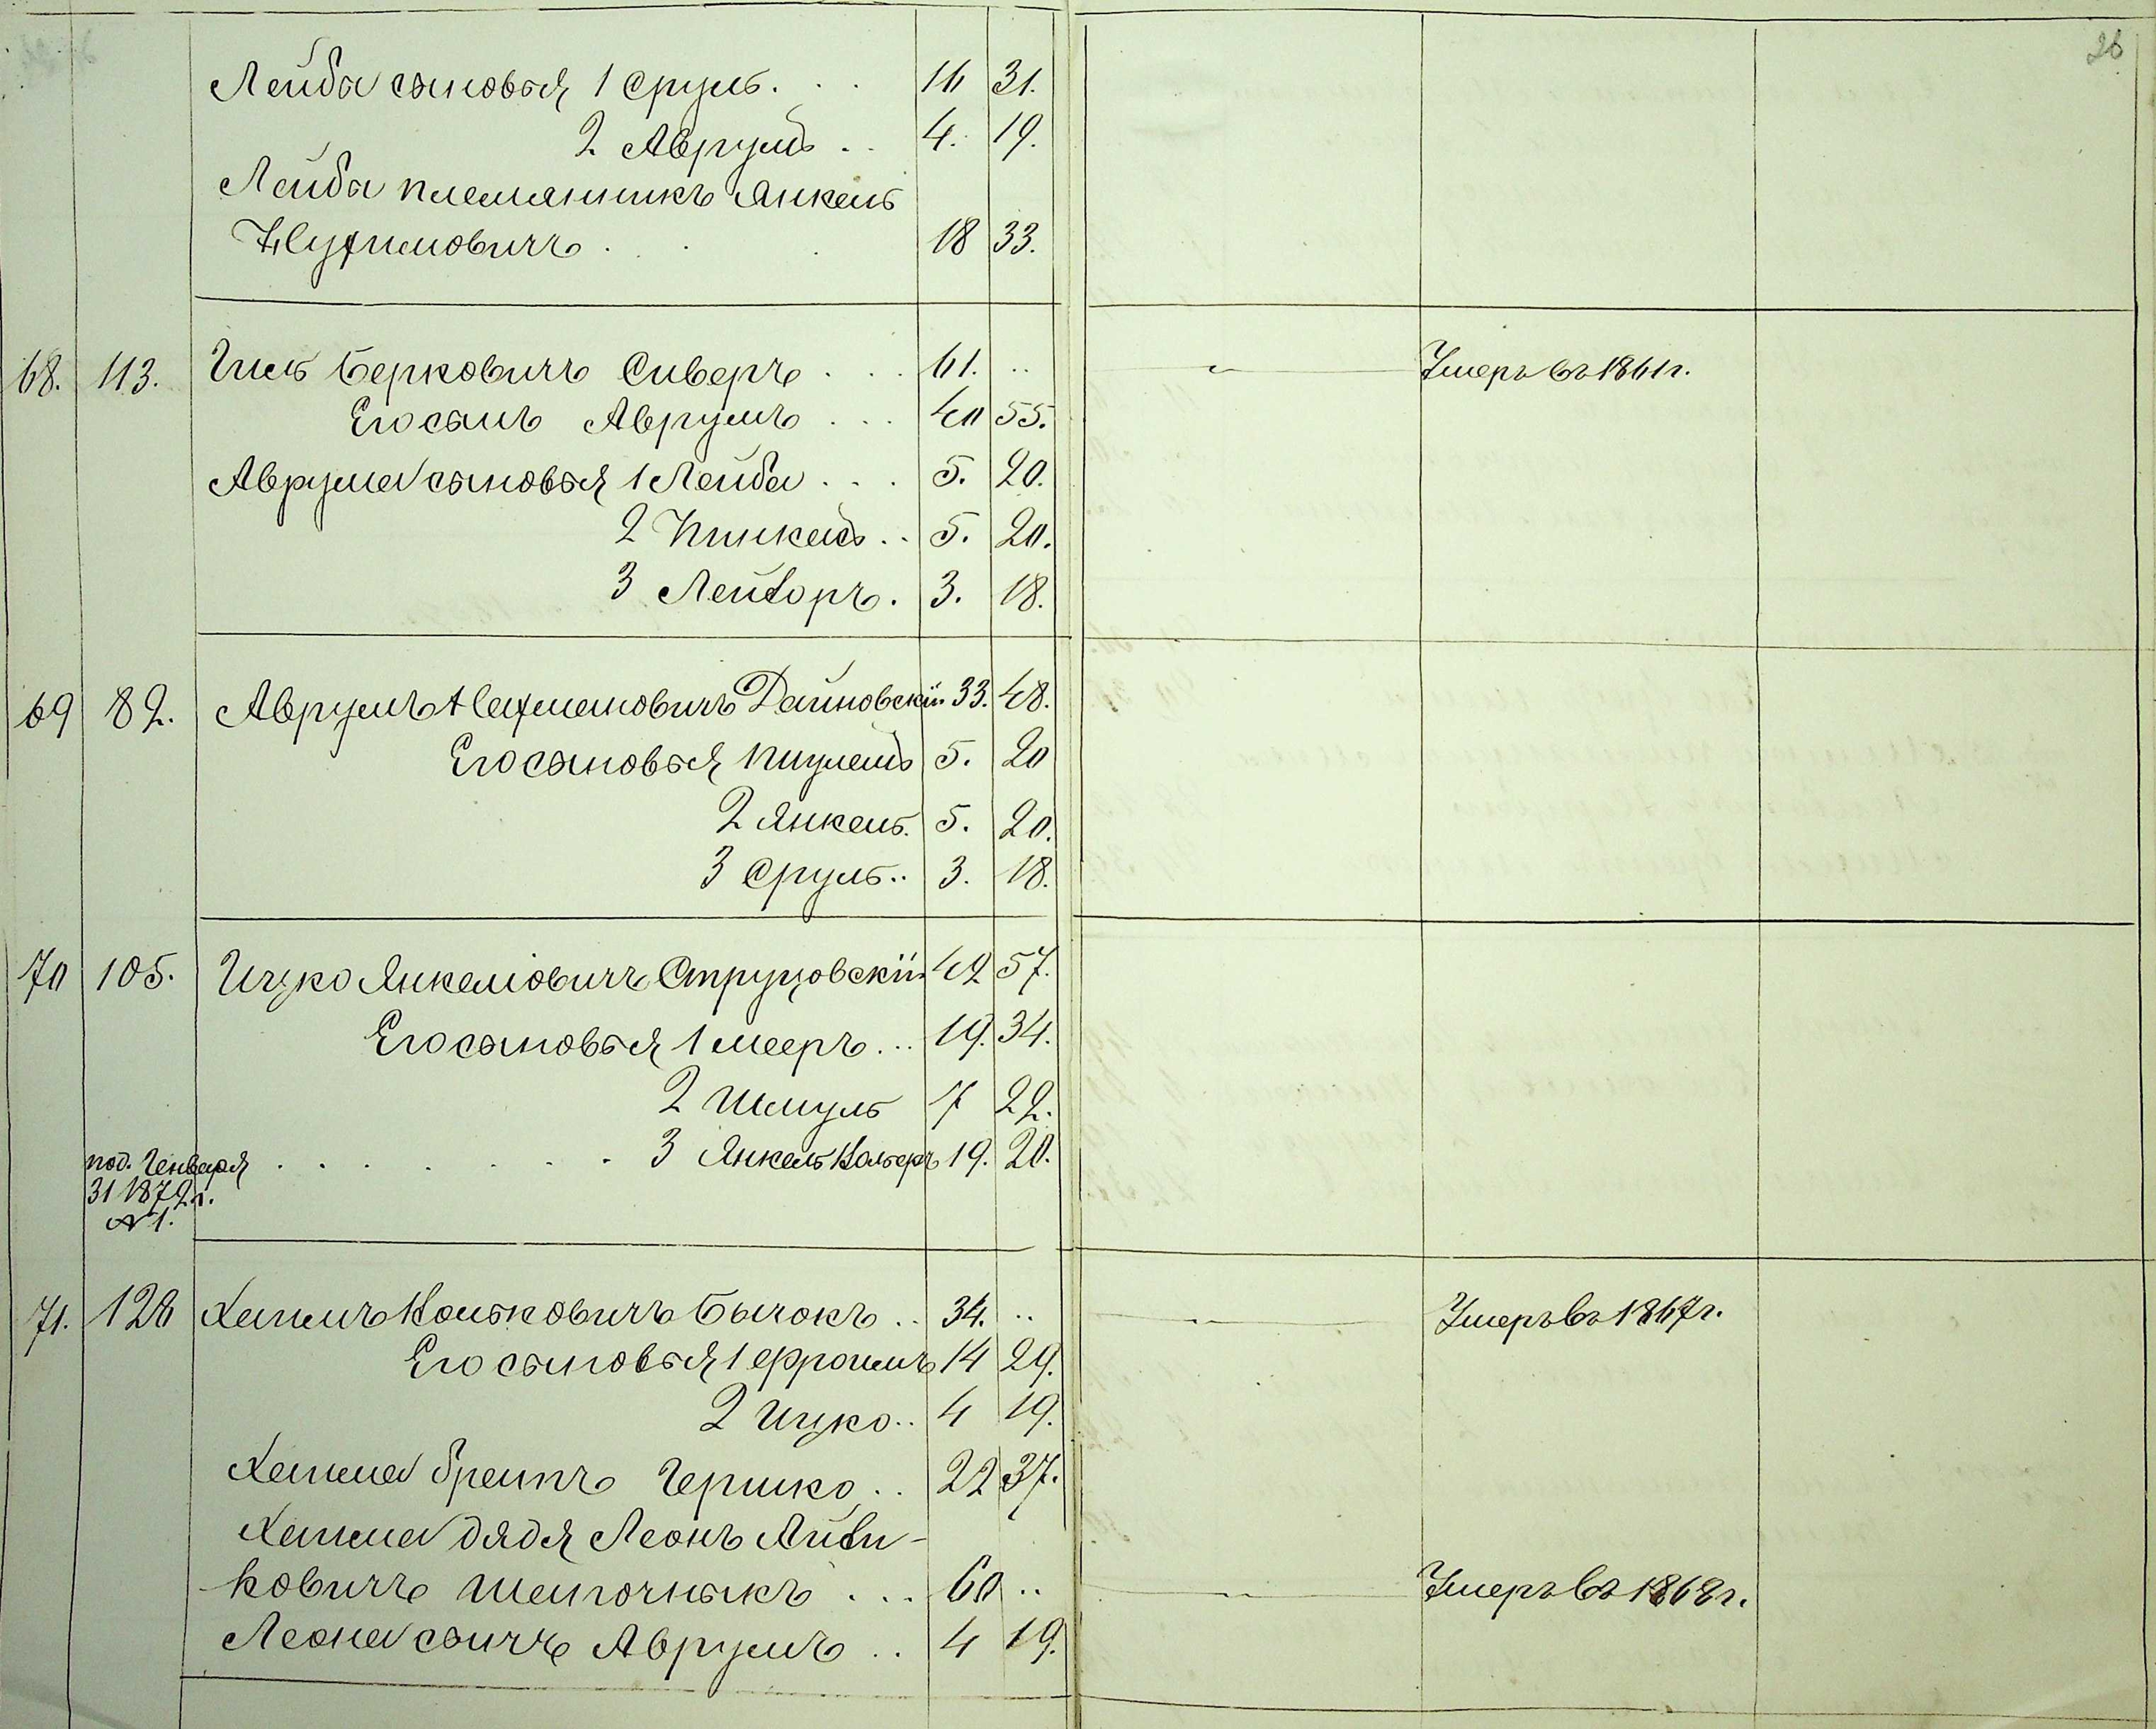 26
Лейба сыновья 1 Сруль . . . 16 31.
2 Аврумъ . . 4. 19.
Лейба племянникъ Янкель
Нухимовичъ . . . 18 33.
68. 113. Гиль Берковичъ Сиверъ . . . 61. .. Умеръ въ 1861 г.
Его сынъ Аврумъ . . . 40 55.
Аврума сыновья 1 Лейба . . . 5. 20.
2 Пинкасъ . . 5. 20.
3 Лейзоръ . 3. 18.
69 82. Аврумъ Нахмановичъ Дайновскій 33. 48.
Его сыновья 5. 20
2 Янкель. 5. 20.
3 Сруль .. 3. 18.
70 105. Ицко Янкеліовичъ Струцовскій 42 57.
Его сыновья 1 Мееръ ... 19. 34.
2 Шмуль 7 22.
под. Генваря . . . . . . . 3 Янкель 19. 20.
31 1872 г.
№ 1.
71. 120 Хаимъ Бычокъ .. 34. .. Умеръ въ 1867 г.
Его сыновья 1 Фроимъ 14 29.
2 Ицко .. 4 19.
Хаима братъ Гершко . . 22 37.
Хаима дядя Леонъ
ковичъ . . . 60 .. Умеръ въ 1868 г.
Леона сынъ Аврумъ . . 4 19.